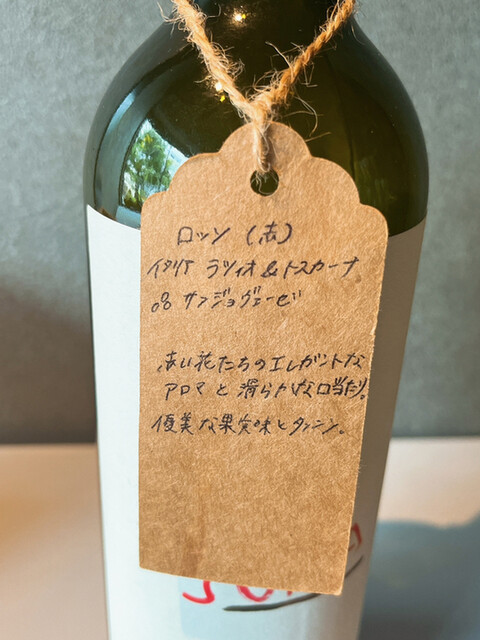 ロッソ (赤)
イタリア ラツィオ&トスカーナ
サンジョヴェーゼ
赤い花たちのエレガントな
アロマと滑らかな口当たり。
優美な果実味とタンニン。